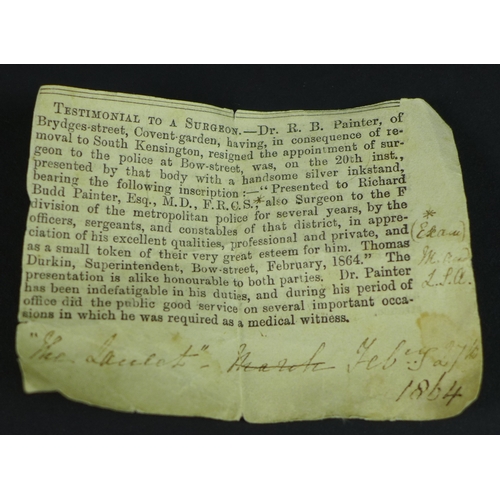 TESTIMONIAL TO A SURGEON.—Dr. R. B. Painter, of
Brydges-street, Covent-garden, having, in consequence of re-
moval to South Kensington, resigned the appointment of sur-
geon to the police at Bow-street, was, on the 20th inst.,
presented by that body with a handsome silver inkstand,
bearing the following inscription:—"Presented to Richard
Budd Painter, Esq., M.D., F.R.C.S.,* also Surgeon to the F
division of the metropolitan police for several years, by the
officers, sergeants, and constables of that district, in appre-
ciation of his excellent qualities, professional and private, and
as a small token of their very great esteem for him. Thomas
Durkin, Superintendent, Bow-street, February, 1864." The
presentation is alike honourable to both parties. Dr. Painter
has been indefatigable in his duties, and during his period of
office did the public good service on several important occa-
sions in which he was required as a medical witness.
*
(Exam)
L.S.A.
"The Lancet" - March Feby 27th
1864